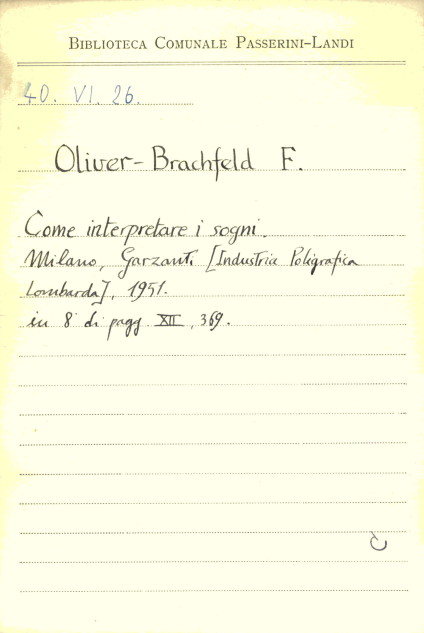 BIBLIOTECA COMUNALE PASSERINI-LANDI
40. VI. 26.
Oliver-Brachfeld F.
Come interpretare i sogni.
Milano, Garzanti [Industria Poligrafica
Lombarda], 1951.
in 8° di pagg. XII, 369.